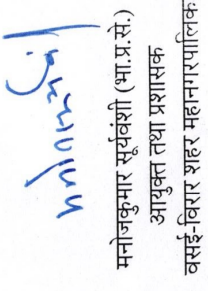 मनोजकुमार सूर्यवंशी (भा.प्र.से.)
आयुक्त तथा प्रशासक
वसई-विरार शहर महानगरपालिक